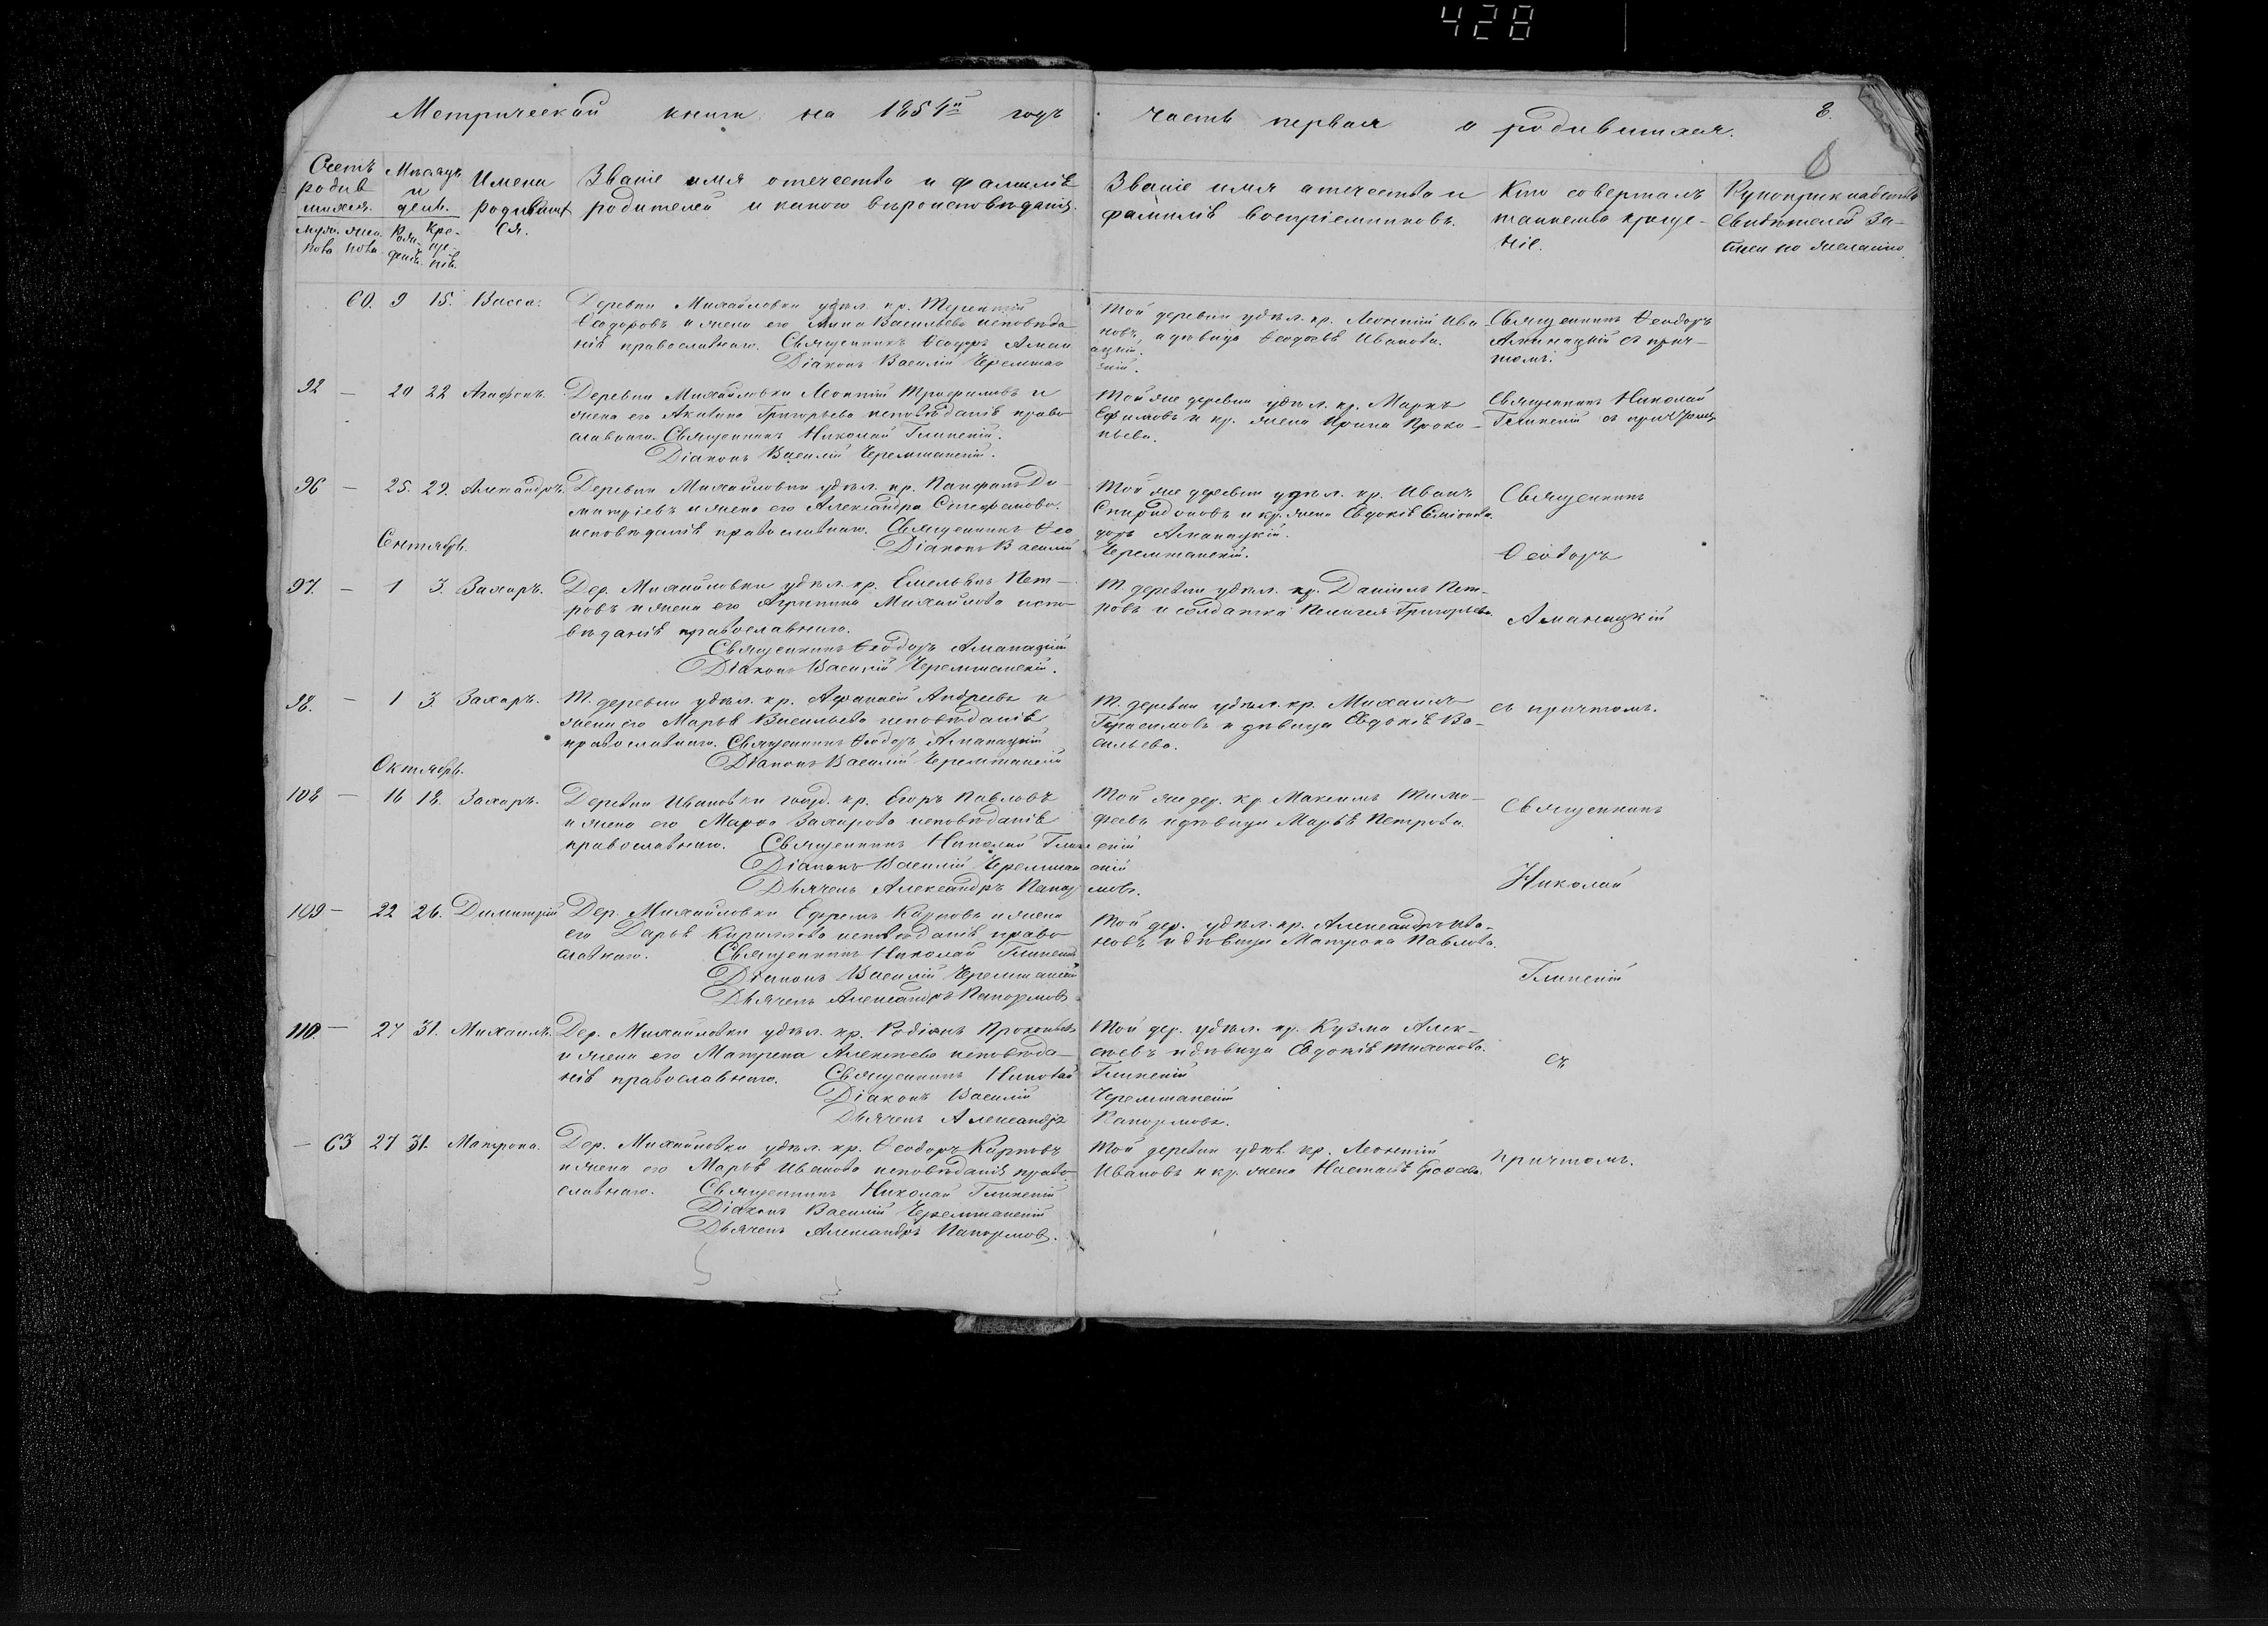 428
Метрической книги на 1854й годъ часть первая о родившихся. 8.
Счетъ родившихся.
мужеска пола женска пола
Мѣсяцъ и день.
Рожденія. Крещенія.
Имена родившихся.
Званіе имя отечество и фамилія
родителей и какого вѣроисповѣданія.
Званіе имя отечество и
фамилія воспріемниковъ.
Кто совершалъ
таинство креще-
ніе.
Рукоприкладство
свидѣтелей за-
писи по желанію.
60. 9 15. Васса.
Деревни Михайловки удѣл. кр. Терентій
Ѳеодоровъ и жена его Анна Васильева исповѣда
нія православнаго. Священникъ Ѳеодоръ Аман
ацкій.
Діаконъ Василій Черемшан
скій.
Той деревни удѣл. кр. Леонтій Ива
новъ, и дѣвица Ѳеодосья Иванова.
Священникъ Ѳеодоръ
Аманацкій съ прич-
томъ.
92 — 20 22 Агафонъ.
Деревни Михайловки Леонтій Трофимовъ и
жена его Акилина Григорьева исповѣданія право
славнаго. Священникъ Николай Глинскій.
Діаконъ Василій Черемшанскій.
Той же деревни удѣл. кр. Маркъ
Ефимовъ и кр. жена Ирина Проко-
пьева.
Священникъ Николай
Глинскій съ причтомъ
96 — 25. 29. Александръ.
Деревни Михайловки удѣл. кр. Панфилъ Ди-
митріевъ и жена его Александра Стефанова.
исповѣданія православнаго. Священникъ Ѳео
доръ Аманацкій.
Діаконъ Василій
Черемшанскій.
Той же деревни удѣл. кр. Иванъ
Спиридоновъ и кр. жена Евдокія Симонова.
Священникъ
Ѳеодоръ
Аманацкій
съ причтомъ.
Сентябрь.
97. — 1 3. Захаръ.
Дер. Михайловки удѣл. кр. Емельянъ Пет-
ровъ и жена его Агрипина Михайлова испо-
вѣданія православнаго.
Священникъ Ѳеодоръ Аманацкій
Діаконъ Василій Черемшанскій.
Т. деревни удѣл. кр. Даніилъ Пет-
ровъ и солдатка Пелагея Григорьева.
98. — 1 3. Захаръ.
Т. деревни удѣл. кр. Афанасій Андреевъ и
жена его Марья Васильева исповѣданія
православнаго. Священникъ Ѳеодоръ Аманацкій
Діаконъ Василій Черемшанскій
Т. деревни удѣл. кр. Михаилъ
Герасимовъ и дѣвица Евдокія Ва-
сильева.
Октябрь.
108 — 16 18. Захаръ.
Деревни Ивановки госуд. кр. Егоръ Павловъ
и жена его Марѳа Захарова исповѣданія
православнаго. Священникъ Николай Глинскій
Діаконъ Василій Черемшанскій
Дьячекъ Александръ Папормовъ.
Той же дер. кр. Максимъ Тимо-
феевъ и дѣвица Марья Петрова.
Священникъ
Николай
Глинскій
съ
причтомъ.
109 — 22 26. Димитрій
Дер. Михайловки Ефремъ Карповъ и жена
его Дарья Кириллова исповѣданія право
славнаго. Священникъ Николай Глинскій
Діаконъ Василій Черемшанскій
Дьячекъ Александръ Папормовъ
Той дер. удѣл. кр. Александръ Ива-
новъ и дѣвица Матрона Павлова.
110. — 27 31. Михаилъ.
Дер. Михайловки удѣл. кр. Родіонъ Прокопьевъ
и жена его Матрена Алексѣева исповѣда-
нія православнаго. Священникъ Николай Глинскій
Діаконъ Василій Черемшанскій
Дьячекъ Александръ Папормовъ.
Той дер. удѣл. кр. Кузма Алек-
сѣевъ и дѣвица Евдокія Тихонова.
— 63 27 31. Матрона.
Дер. Михайловки удѣл. кр. Ѳеодоръ Карповъ
и жена его Марья Иванова исповѣданія право-
славнаго. Священникъ Николай Глинскій
Діаконъ Василій Черемшанскій
Дьячекъ Александръ Папормовъ.
Той деревни удѣл. кр. Леонтій
Ивановъ и кр. жена Настасья